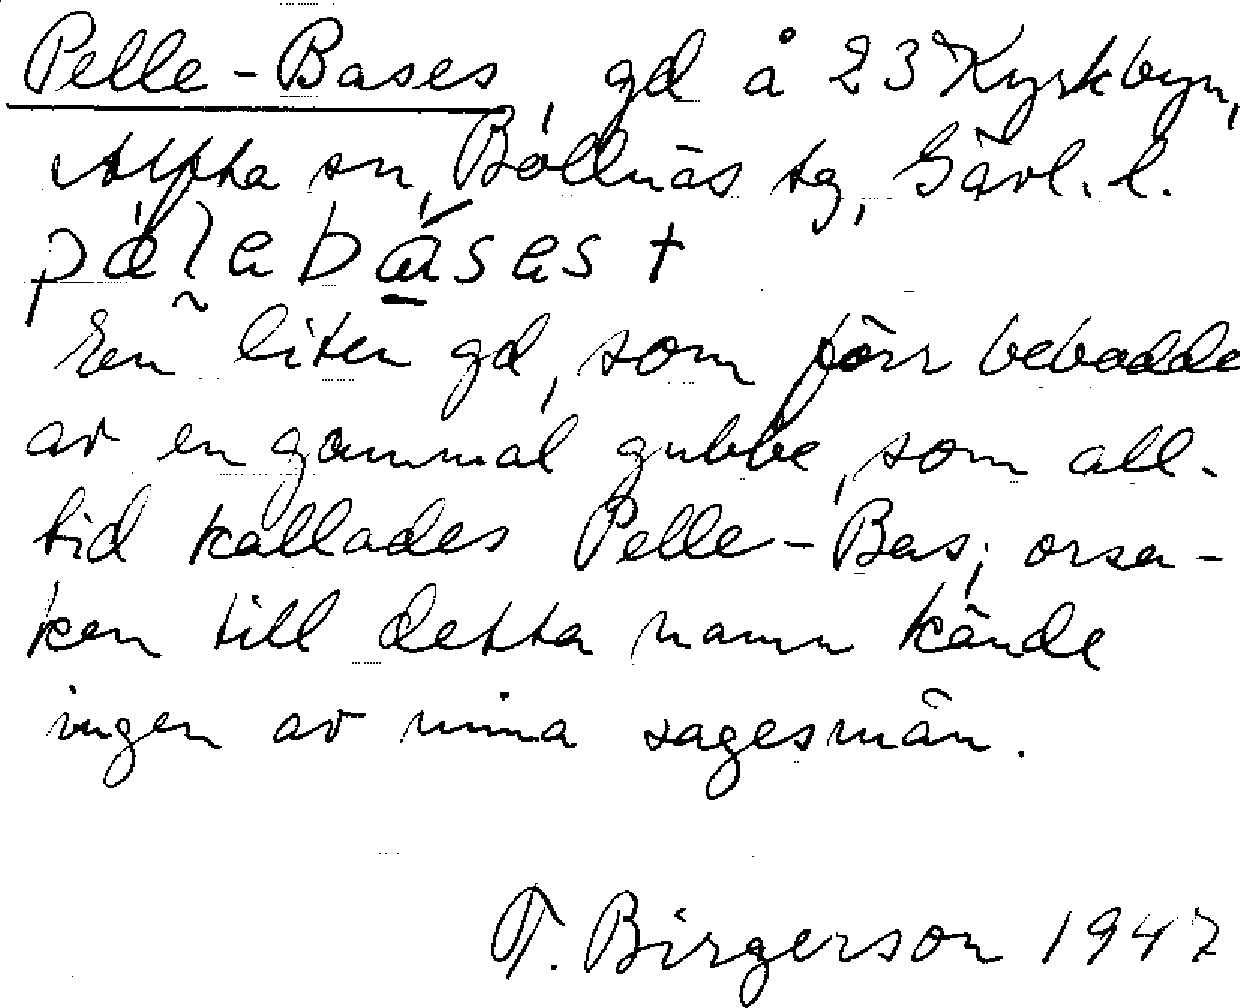 Pelle-Bases, gd å 23 Kyrkbyn,
Alfta sn, Bollnäs tg, Gävl. l.
En liten gd, som förr beboddes
av en gammal gubbe, som all-
tid kallades Pelle-Bas; orsa-
ken till detta namn kände
ingen av mina sagesmän.
T. Birgerson 1947